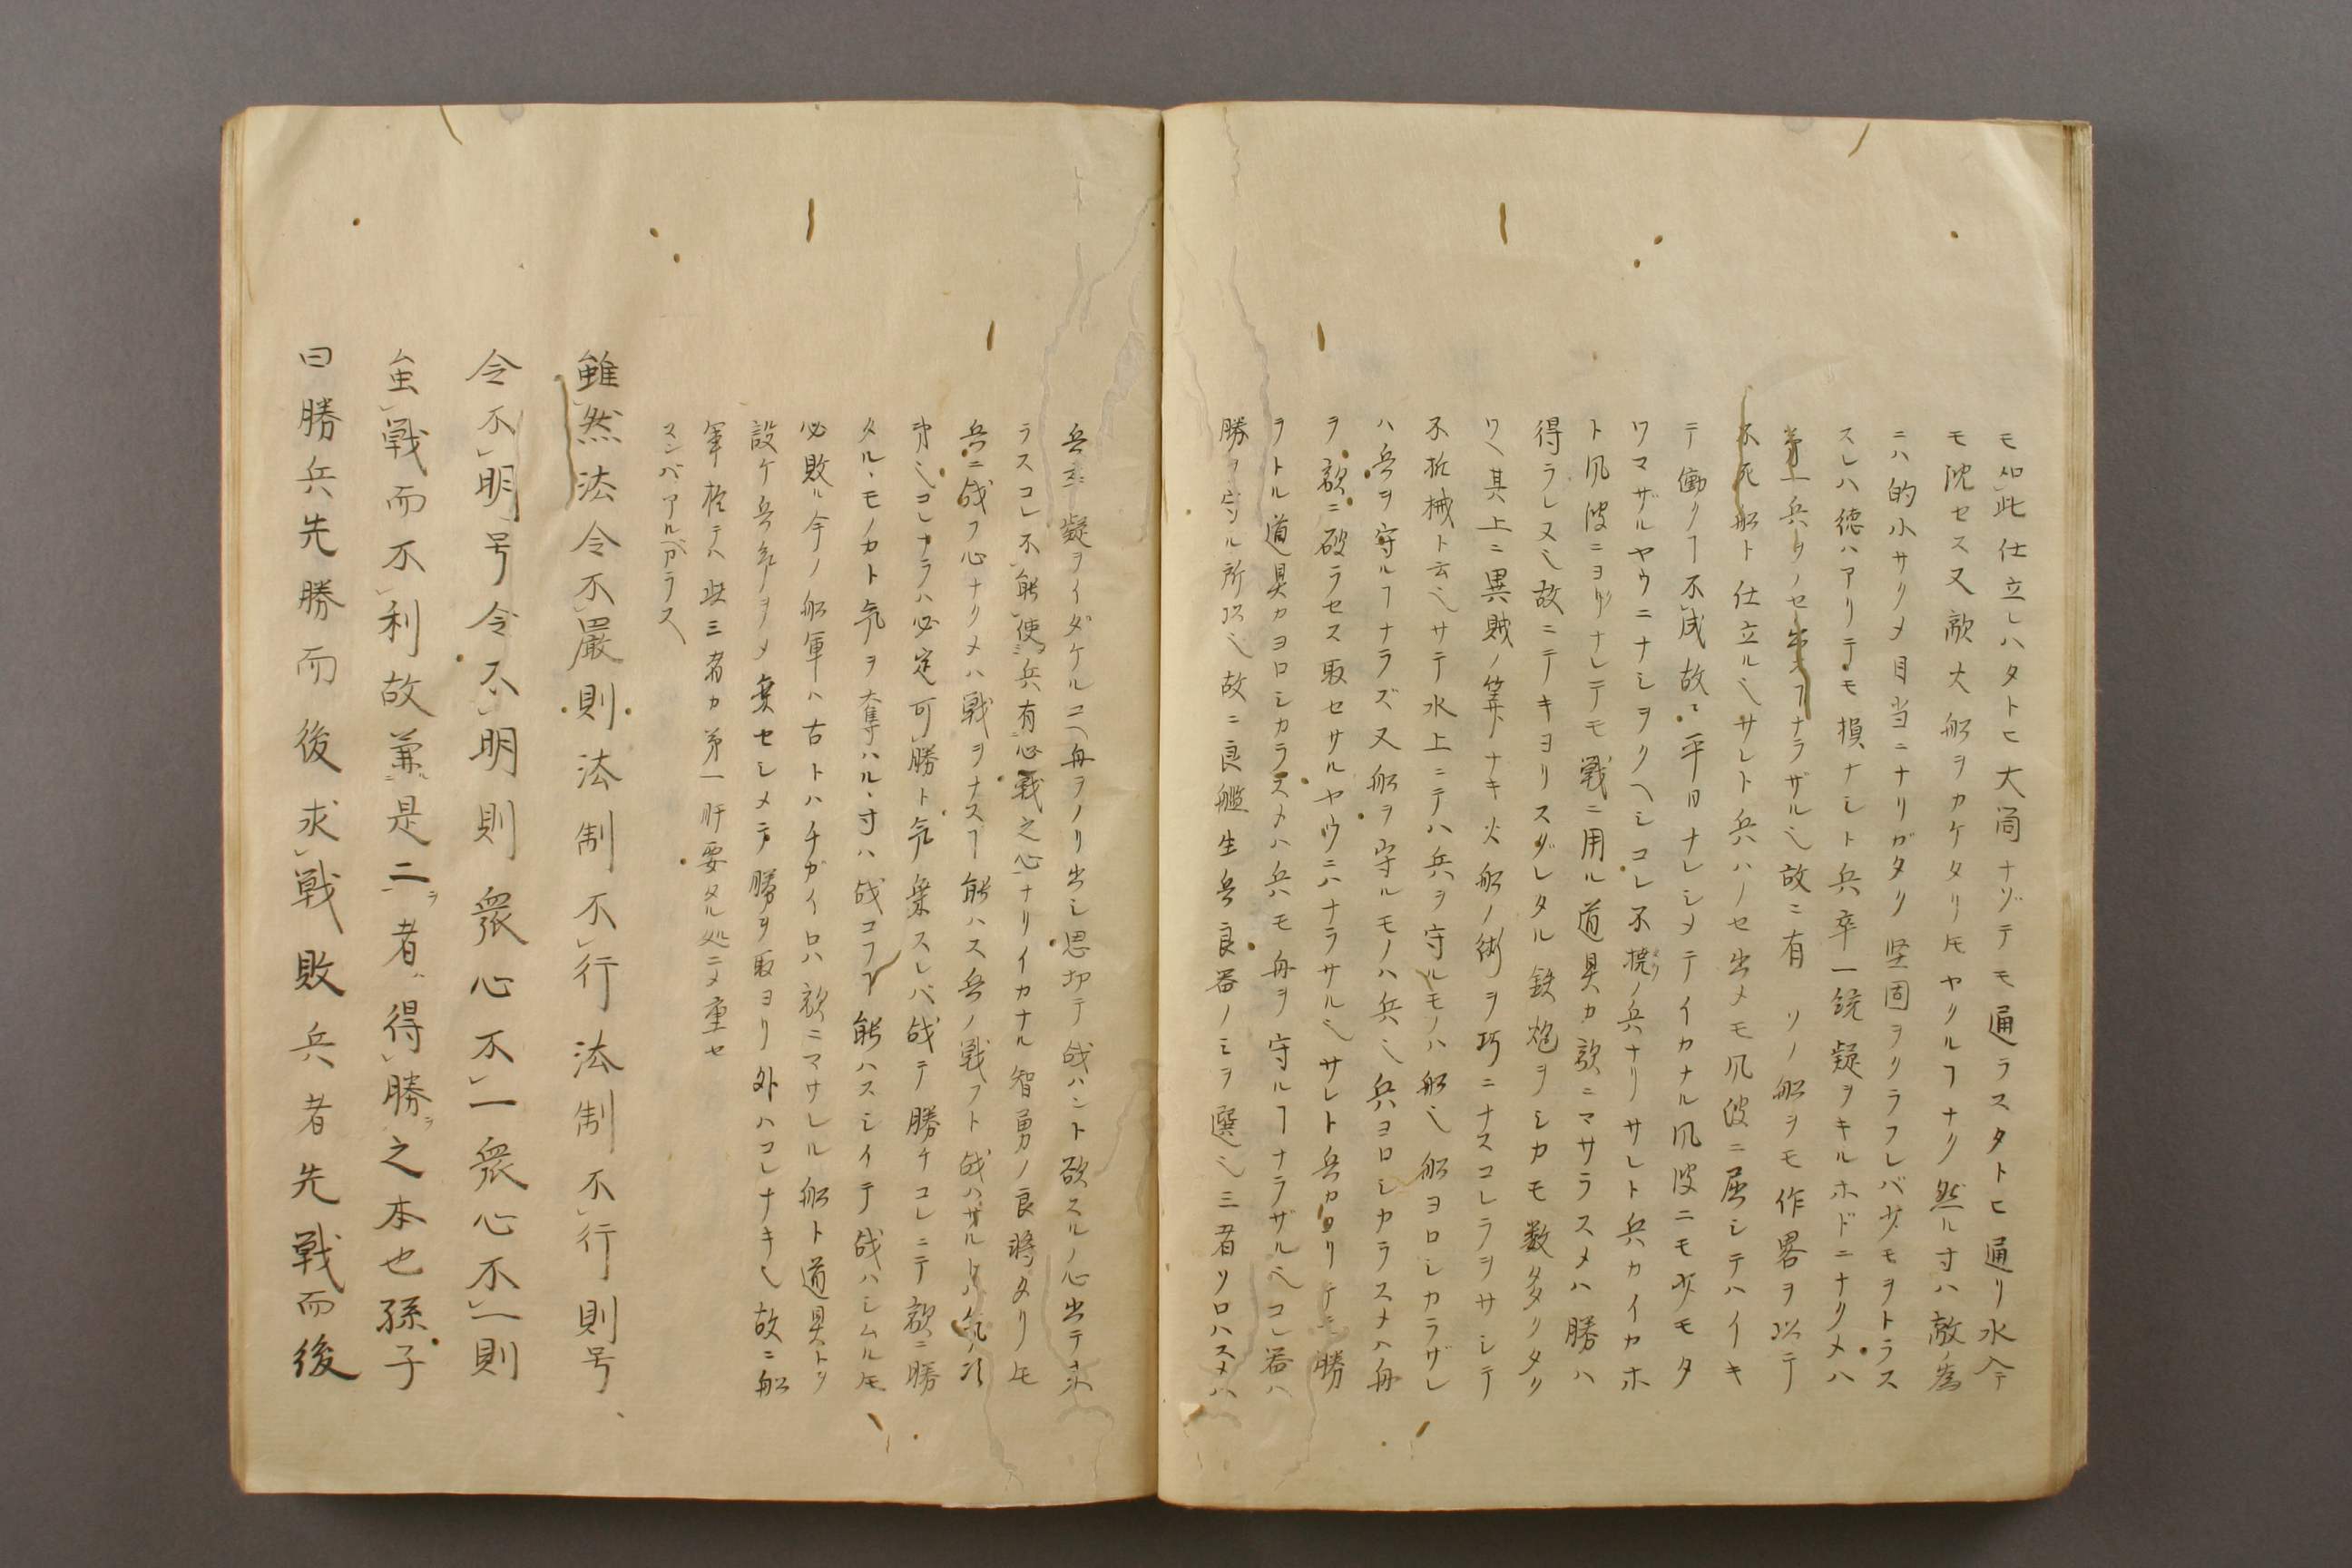 モ如此仕立レハタトヒ大筒ナゾテモ通ラスタトヒ通リ水入テ
モ沈セス又敵大船ヲカケタリ𪜈ヤクルヿナク然ル寸ハ敵ノ為
ニハ的小サクメ目当ニナリガタク堅固ヲクラフレバ少モヲトラス
スレハ徳ハアリテモ損ナシト兵卒一統疑ヲキルホドニナクメハ
第一兵ノセ出スヿナラザル也故ニ有ソノ船ヲモ作畧ヲ以テ
不死船ト仕立ル也サレト兵ハノセ出メモ凨波ニ屈シテハイキ
テ働クヿ不成故ニ平日ナレシメテイカナル凨波ニモ少モタ
ワマザルヤウニナシヲクヘシコレ不撓ノ兵ナリサレト兵カイカホ
ト凨波ニヨクナレテモ戦ニ用ル道具カ敵ニマサラスメハ勝ハ
得ラレヌ也故ニテキヨリスグレタル鉄炮ヲシカモ数多クタク
ワヘ其上ニ異賊ノ筭ナキ火船ノ術ヲ巧ニナスコレラヲサシテ
不拙械ト云也サテ水上ニテハ兵ヲ守ルモノハ船也船ヨロシカラザレ
ハ兵ヲ守ルヿナラズ又船ヲ守ルモノハ兵也兵ヨロシカラスメハ舟
ヲ敵ニ破ラセス取セサルヤウニハナラサル也サレト兵カヨリテモ勝
ヲトル道具カヨロシカラスメハ兵モ舟ヲ守ルヿナラザル也コレ器ハ
勝ヲ守ル所以也故ニ良艦生兵良器ノミヲ選也三者ソロハスメハ
兵疑ヲイダケルユヘ舟ヲノリ出シ思切テ战ハント欲スルノ心出テ来
ラスコレ不能使兵有心戦之心ナリイカナル智勇ノ良将タリ𪜈
兵ニ战フ心ナクメハ戦ヲナスヿ能ハス兵ノ戦フト战ハサルトハ気ノ
也コレナラハ必定可勝ト気乗スレバ战テ勝チコレニテ敵ニ勝
タル丶モノカト気ヲ奪ハル丶寸ハ战コフヿ能ハスシイテ战ハシムル𪜈
必敗ル今ノ船軍ハ古トハチカイロハ敵ニマサレル船ト道具トヲ
設ケ兵気ヲメ乗セシメテ勝ヲ取ヨリ外ハコレナキ也故ニ船
軍於テハ此三者カ第一肝要タル処ニメ重セ
スンバアルベカラス
雖然法令不厳則法制不行法制不行則号
令不明号令不明則衆心不一衆心不一則
虽戦而不利故兼是二者得勝之本也孫子
曰勝兵先勝而後求戦敗兵者先戦而後